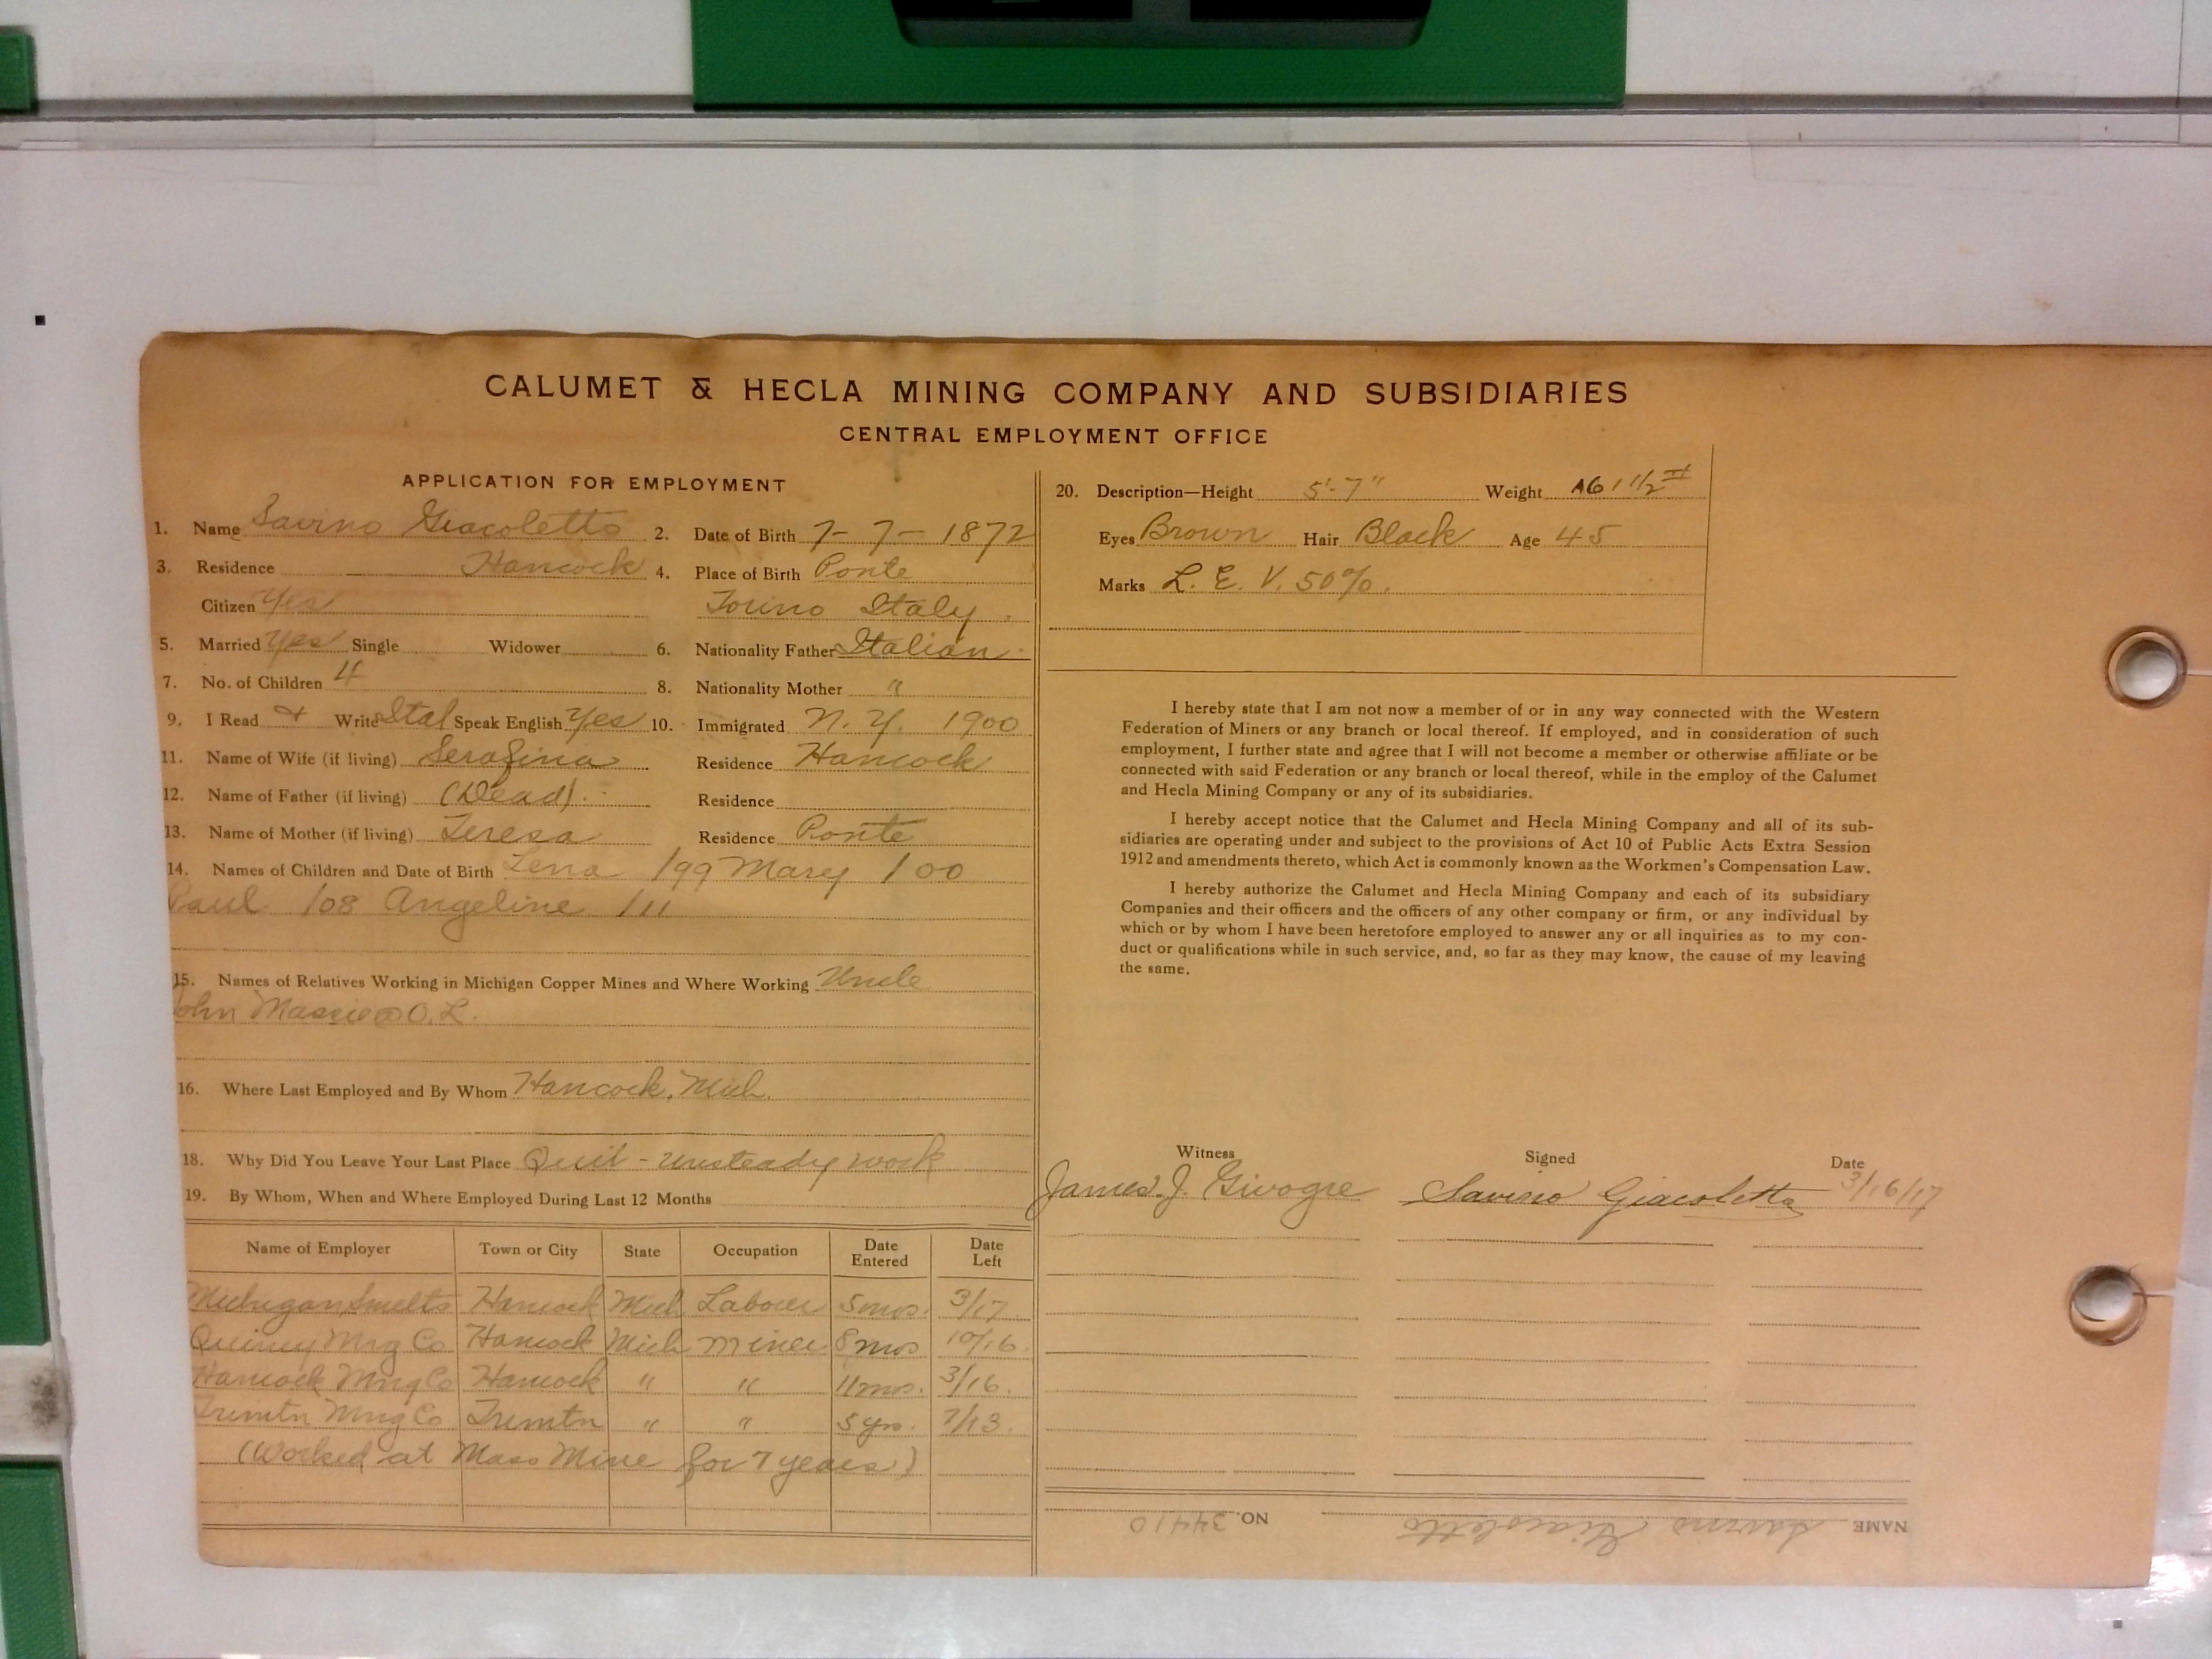 CALUMET & HECLA MINING COMPANY AND SUBSIDIARIES
CENTRAL EMPLOYMENT OFFICE
APPLICATION FOR EMPLOYMENT
1. Name Savino Giacoletto 2. Date of Birth 7-7-1872
3. Residence Hancock 4. Place of Birth Ponte
Citizen Yes Torino Italy.
5. Married Yes Single Widower 6. Nationality Father Italian
7. No. of Children 4 8. Nationality Mother "
9. I Read & Write Ital Speak English Yes 10. Immigrated N.Y. 1900
11. Name of Wife (if living) Serafina Residence Hancock
12. Name of Father (if living) (Dead). Residence
13. Name of Mother (if living) Teresa Residence Ponte
14. Names of Children and Date of Birth Lena /99 Mary /00
Paul /08 Angeline /11
15. Names of Relatives Working in Michigan Copper Mines and Where Working Uncle
John Massie @ O.L.
16. Where Last Employed and By Whom Hancock, Mich.
18. Why Did You Leave Your Last Place Quit - unsteady work
19. By Whom, When and Where Employed During Last 12 Months
Name of Employer Town or City State Occupation Date Entered Date Left
Michigan Smelts Hancock Mich Laborer 5 mos. 3/17
Quincy Mng Co Hancock Mich Miner 8 mos 10/16.
Hancock Mng Co Hancock " " 11 mos. 3/16.
Trimtn Mng Co Trimtn " " 5 yrs. 7/13.
(Worked at Mass Mine for 7 years)
20. Description—Height 5'-7" Weight 161 1/2 #
Eyes Brown Hair Black Age 45
Marks L. E. V. 50%.
I hereby state that I am not now a member of or in any way connected with the Western
Federation of Miners or any branch or local thereof. If employed, and in consideration of such
employment, I further state and agree that I will not become a member or otherwise affiliate or be
connected with said Federation or any branch or local thereof, while in the employ of the Calumet
and Hecla Mining Company or any of its subsidiaries.
I hereby accept notice that the Calumet and Hecla Mining Company and all of its sub-
sidiaries are operating under and subject to the provisions of Act 10 of Public Acts Extra Session
1912 and amendments thereto, which Act is commonly known as the Workmen's Compensation Law.
I hereby authorize the Calumet and Hecla Mining Company and each of its subsidiary
Companies and their officers and the officers of any other company or firm, or any individual by
which or by whom I have been heretofore employed to answer any or all inquiries as to my con-
duct or qualifications while in such service, and, so far as they may know, the cause of my leaving
the same.
Witness Signed Date
James J. Givogre Savino Giacoletto 3/16/17
NAME Savino Giacoletto NO. 34410